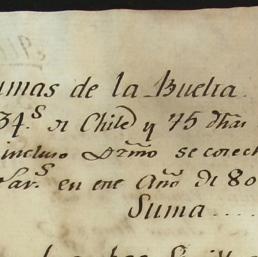 umas de la Buelta
34.s de Chile y 75 dhas
incluso Dzmo se cosech
Par.s en ene Año de 80
Suma....